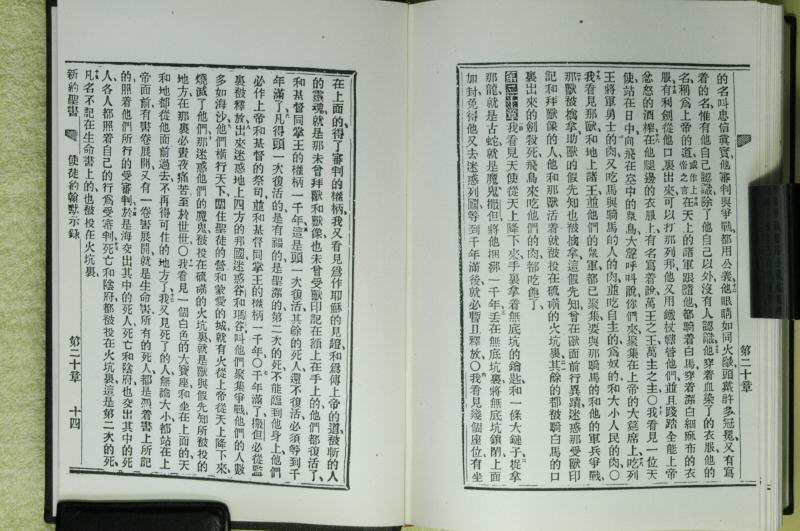 第二十章
的名叫忠信眞實他審判與爭戰都用公義他眼睛如同火燄頭戴許多冠冕又有寫
着的名惟有他自己認識除了他自己以外沒有人認識他穿着血染了的衣服他的
名稱爲上帝的道在天上的諸軍跟隨他都騎着白馬穿着潔白細麻布的衣
服有利劍從他口裏出來可以打那列邦他又用鐵杖轄管他們並且踐踏全能上帝
忿怒的酒榨在他腿邊的衣服上有名寫着說萬王之王萬主之主〇我看見一位天
使站在日中向飛在空中的衆鳥大聲呼叫說你們來聚集在上帝的大筵席上吃列
王將軍勇士的肉又吃馬與騎馬的人的肉並吃自主的爲奴的和大小人民的肉〇
我看見那獸和地上諸王並他們的衆軍都已聚集要與那騎馬的和他的軍兵爭戰
那獸被擒拿助獸的假先知也被擒拿這假先知曾在獸面前行異蹟迷惑那受獸印
記和拜獸像的人他和那獸活着就被投在用硫磺的火坑裏其餘的都被騎白馬的口
裏出來的劍殺死飛鳥來吃他們的肉都吃飽了
第二十章我看見天使從天上降下來手裏拿着無底坑的鑰匙和一條大鏈子捉拿
那龍就是古蛇就是魔鬼撒但將他捆綁一千年丟在無底坑裏將無底坑鎖閉上面
加封免得他又去迷惑列國等到千年滿後就必暫且釋放〇我看見幾個座位有坐
在上面的得了審判的權柄我又看見爲作耶穌的見證和爲傳上帝的道被斬的人
的靈魂就是那未曾拜獸和獸像也未曾受獸印記在額上在手上的他們都復活了
和基督同掌王的權柄一千年這是頭一次復活其餘的死人還不復活必須等到千
年滿了凡得頭一次復活的是有福的是聖潔的第二次的死不能臨到他身上他們
必作上帝和基督的祭司並和基督同掌王的權柄一千年〇千年滿了撒但必從監
裏被釋放出來迷惑地上四方的那國迷惑谷和瑪谷叫他們聚集爭戰他們的人數
多如海沙他們橫行天下圍住聖徒的營和蒙愛的城就有火從上帝從天上降下來
燒滅了他們那迷惑他們的魔鬼被投在硫磺的火坑裏就是獸與假先知所被投的
地方在那裏必晝夜痛苦至於世世〇我看見一個白色的大寶座和坐在上面的天
和地都從他面前過去不再得可住的地方了我又見死了的人無論大小都站在上
帝面前有書卷展開又有一卷書展開就是生命書所有的死人都是憑着書上所記
的照着他們所行的受審判於是海交出其中的死人死亡和陰府也交出其中的死
人各人都照着自己的行爲受審判死亡和陰府都被投在火坑裏這是第二次的死
凡名不記在生命書上的也被投在火坑裏
新約聖書 使徒約翰默示錄 第二十章 十四